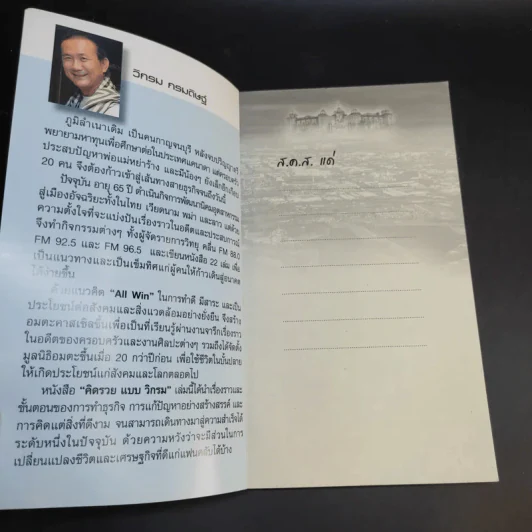 วิกรม กรมดิษฐ์
ภูมิลำเนาเดิม เป็นคนกาญจนบุรี หลังจบปริญญาตรี
พยายามหาทุนเพื่อศึกษาต่อในประเทศแคนาดา แต่ครอบครัว
ประสบปัญหาพ่อแม่หย่าร้าง และมีน้องๆ ยังเล็กอีกเกือบ
20 คน จึงต้องก้าวเข้าสู่เส้นทางสายธุรกิจจนถึงวันนี้
ปัจจุบัน อายุ 65 ปี ดำเนินกิจการพัฒนานิคมอุตสาหกรรม
สู่เมืองอัจฉริยะทั้งในไทย เวียดนาม พม่า และลาว แต่ด้วย
ความตั้งใจที่จะแบ่งปันเรื่องราวในอดีตและประสบการณ์
จึงทำกิจกรรมต่างๆ ทั้งผู้จัดรายการวิทยุ คลื่น FM 88.0
FM 92.5 และ FM 96.5 และเขียนหนังสือ 22 เล่ม เพื่อ
เป็นแนวทางและเป็นเข็มทิศแก่ผู้คนให้ก้าวเดินสู่อนาคต
ได้ง่ายขึ้น
ด้วยแนวคิด "All Win" ในการทำดี มีสาระ และเป็น
ประโยชน์ต่อสังคมและสิ่งแวดล้อมอย่างยั่งยืน จึงสร้าง
อมตะคาสเซิลขึ้นเพื่อเป็นที่เรียนรู้ผ่านงานจารึกเรื่องราว
ในอดีตของครอบครัวและงานศิลปะต่างๆ รวมถึงได้จัดตั้ง
มูลนิธิอมตะขึ้นเมื่อ 20 กว่าปีก่อน เพื่อใช้ชีวิตในบั้นปลาย
ให้เกิดประโยชน์แก่สังคมและโลกตลอดไป
หนังสือ "คิดรวย แบบ วิกรม" เล่มนี้ได้นำเรื่องราวและ
ขั้นตอนของการทำธุรกิจ การแก้ปัญหาอย่างสร้างสรรค์ และ
การคิดแต่สิ่งที่ดีงาม จนสามารถเดินทางมาสู่ความสำเร็จได้
ระดับหนึ่งในปัจจุบัน ด้วยความหวังว่าจะมีส่วนในการ
เปลี่ยนแปลงชีวิตและเศรษฐกิจที่ดีแก่แฟนคลับได้บ้าง
ส.ค.ส. แด่